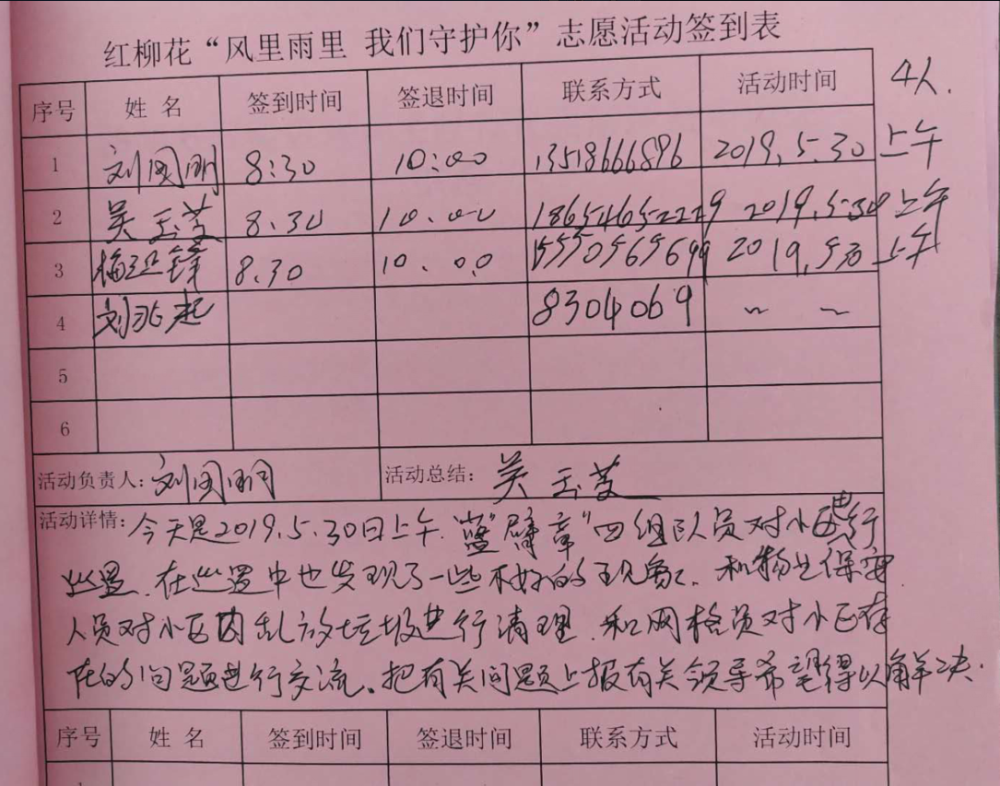 红柳花“风里雨里 我们守护你”志愿活动签到表
4人.
序号 姓 名 签到时间 签退时间 联系方式 活动时间
1 刘国明 8:30 10:00 13518666896 2019.5.30 上午
2 吴玉芝 8.30 10.00 18654652229 2019.5.30 上午
3 8.30 10.00 15550565699 2019.5.30 上午
4 刘兆起 8304069 ~ ~
5
6
活动负责人: 刘国明 活动总结: 吴玉芝
活动详情: 今天是2019.5.30日上午.“蓝臂章”四组队员对小区进行
巡逻.在巡逻中也发现了一些不好的现象.和物业保安
人员对小区内乱放垃圾进行清理.和网格员对小区存
在的问题进行交流。把有关问题上报有关领导希望得以解决.
序号 姓 名 签到时间 签退时间 联系方式 活动时间